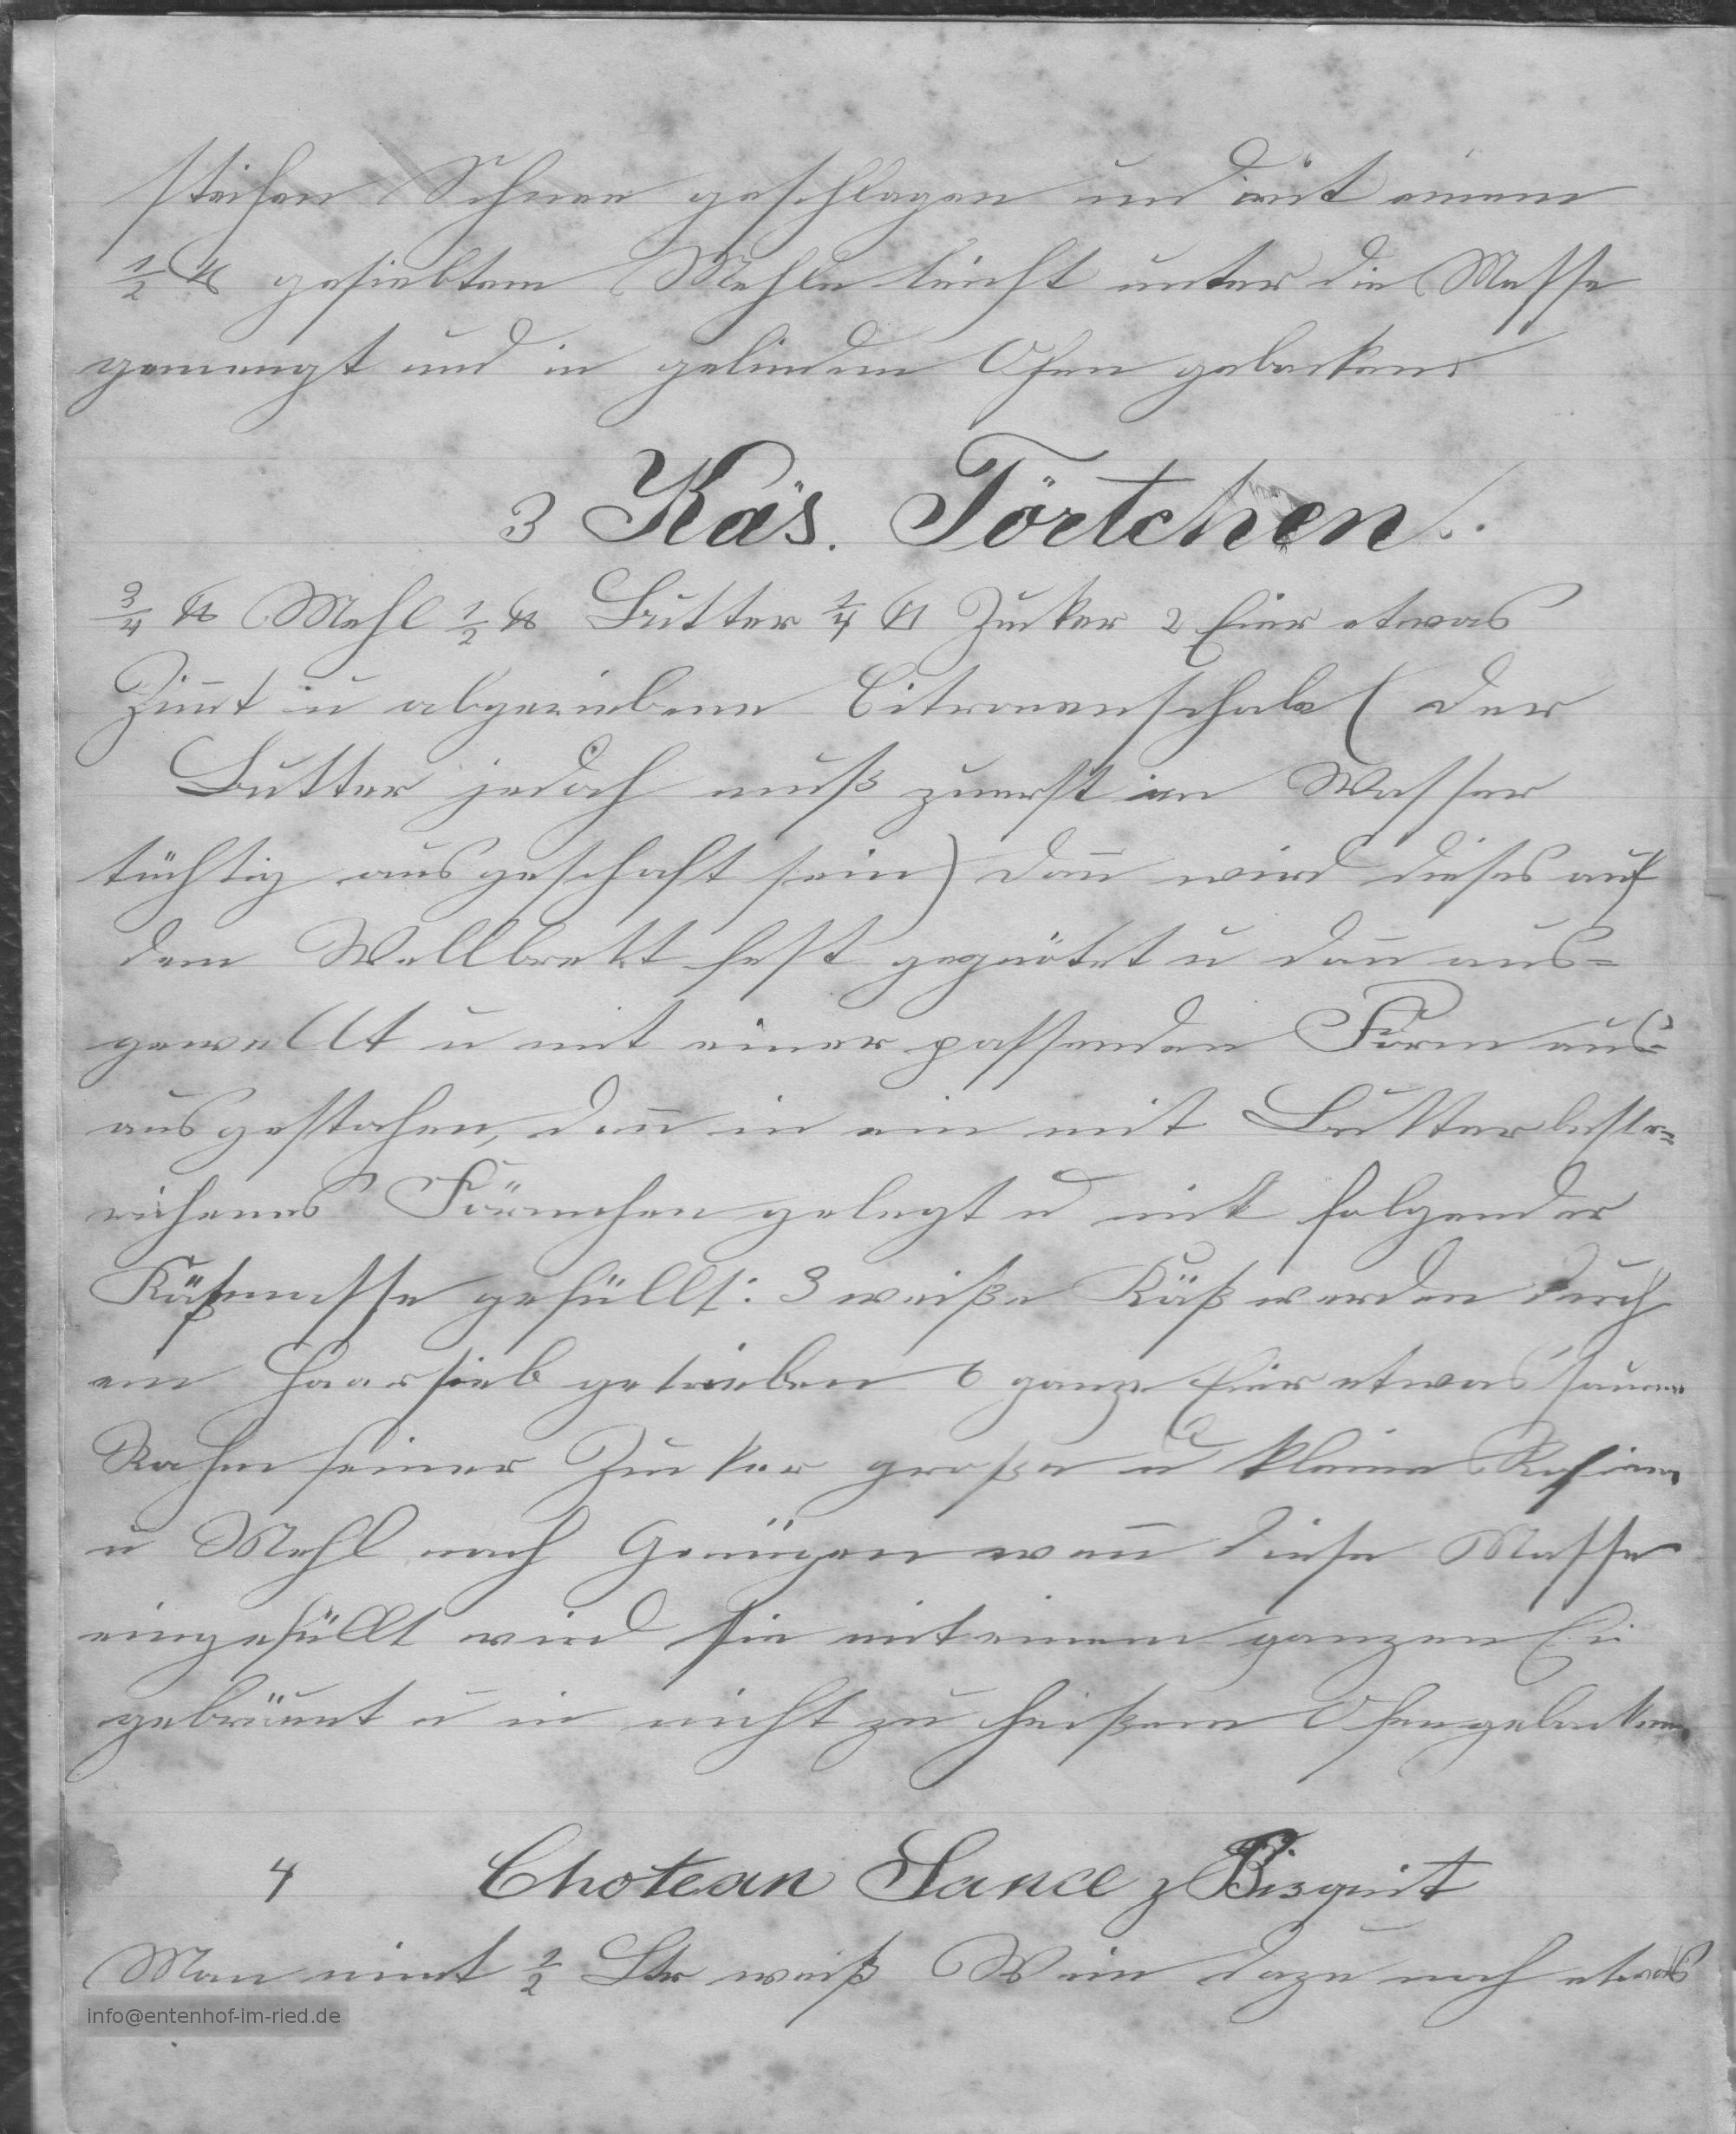 steifen Schnee geschlagen und mit einem
½ ℔ gesiebtem Mehle leicht unter die Masse
gemengt und in gelindem Ofen gebacken
3 Käs. Törtchen.
¾ ℔ Mehl ½ ℔ Butter ¼ ℔ Zucker 2 Eier etwas
Zim̅t u abgeriebene Citronenschale (der
Butter jedoch muß zuerst im Wasser
tüchtig ausgeschafft sein) dan̅ wird dieses auf
dem Wellbrett fest geknätet u dan̅ aus=
gewellt u mit einer passenden Form aus=
ausgestochen, dan̅ in ein mit Butter bestr=
ichenes Förmchen gelegt u mit folgender
Käßmasse gefüllt: 3 weiße Käß werden durch
ein Haarsieb getrieben 6 ganze Eier etwas sauern
Rahm feiner Zucker große u kleine Rosinen
u Mehl nach Genügen wen̅ diese Masse
eingefüllt wird sie mit einem ganzen Ei
gebräunt u in nicht zu heißem Ofen gebacken.
4 Chotean Sance z Bisquit
Man nimt ½ Ltr weiß Wein dazu noch etwas
info@entenhof-im-ried.de